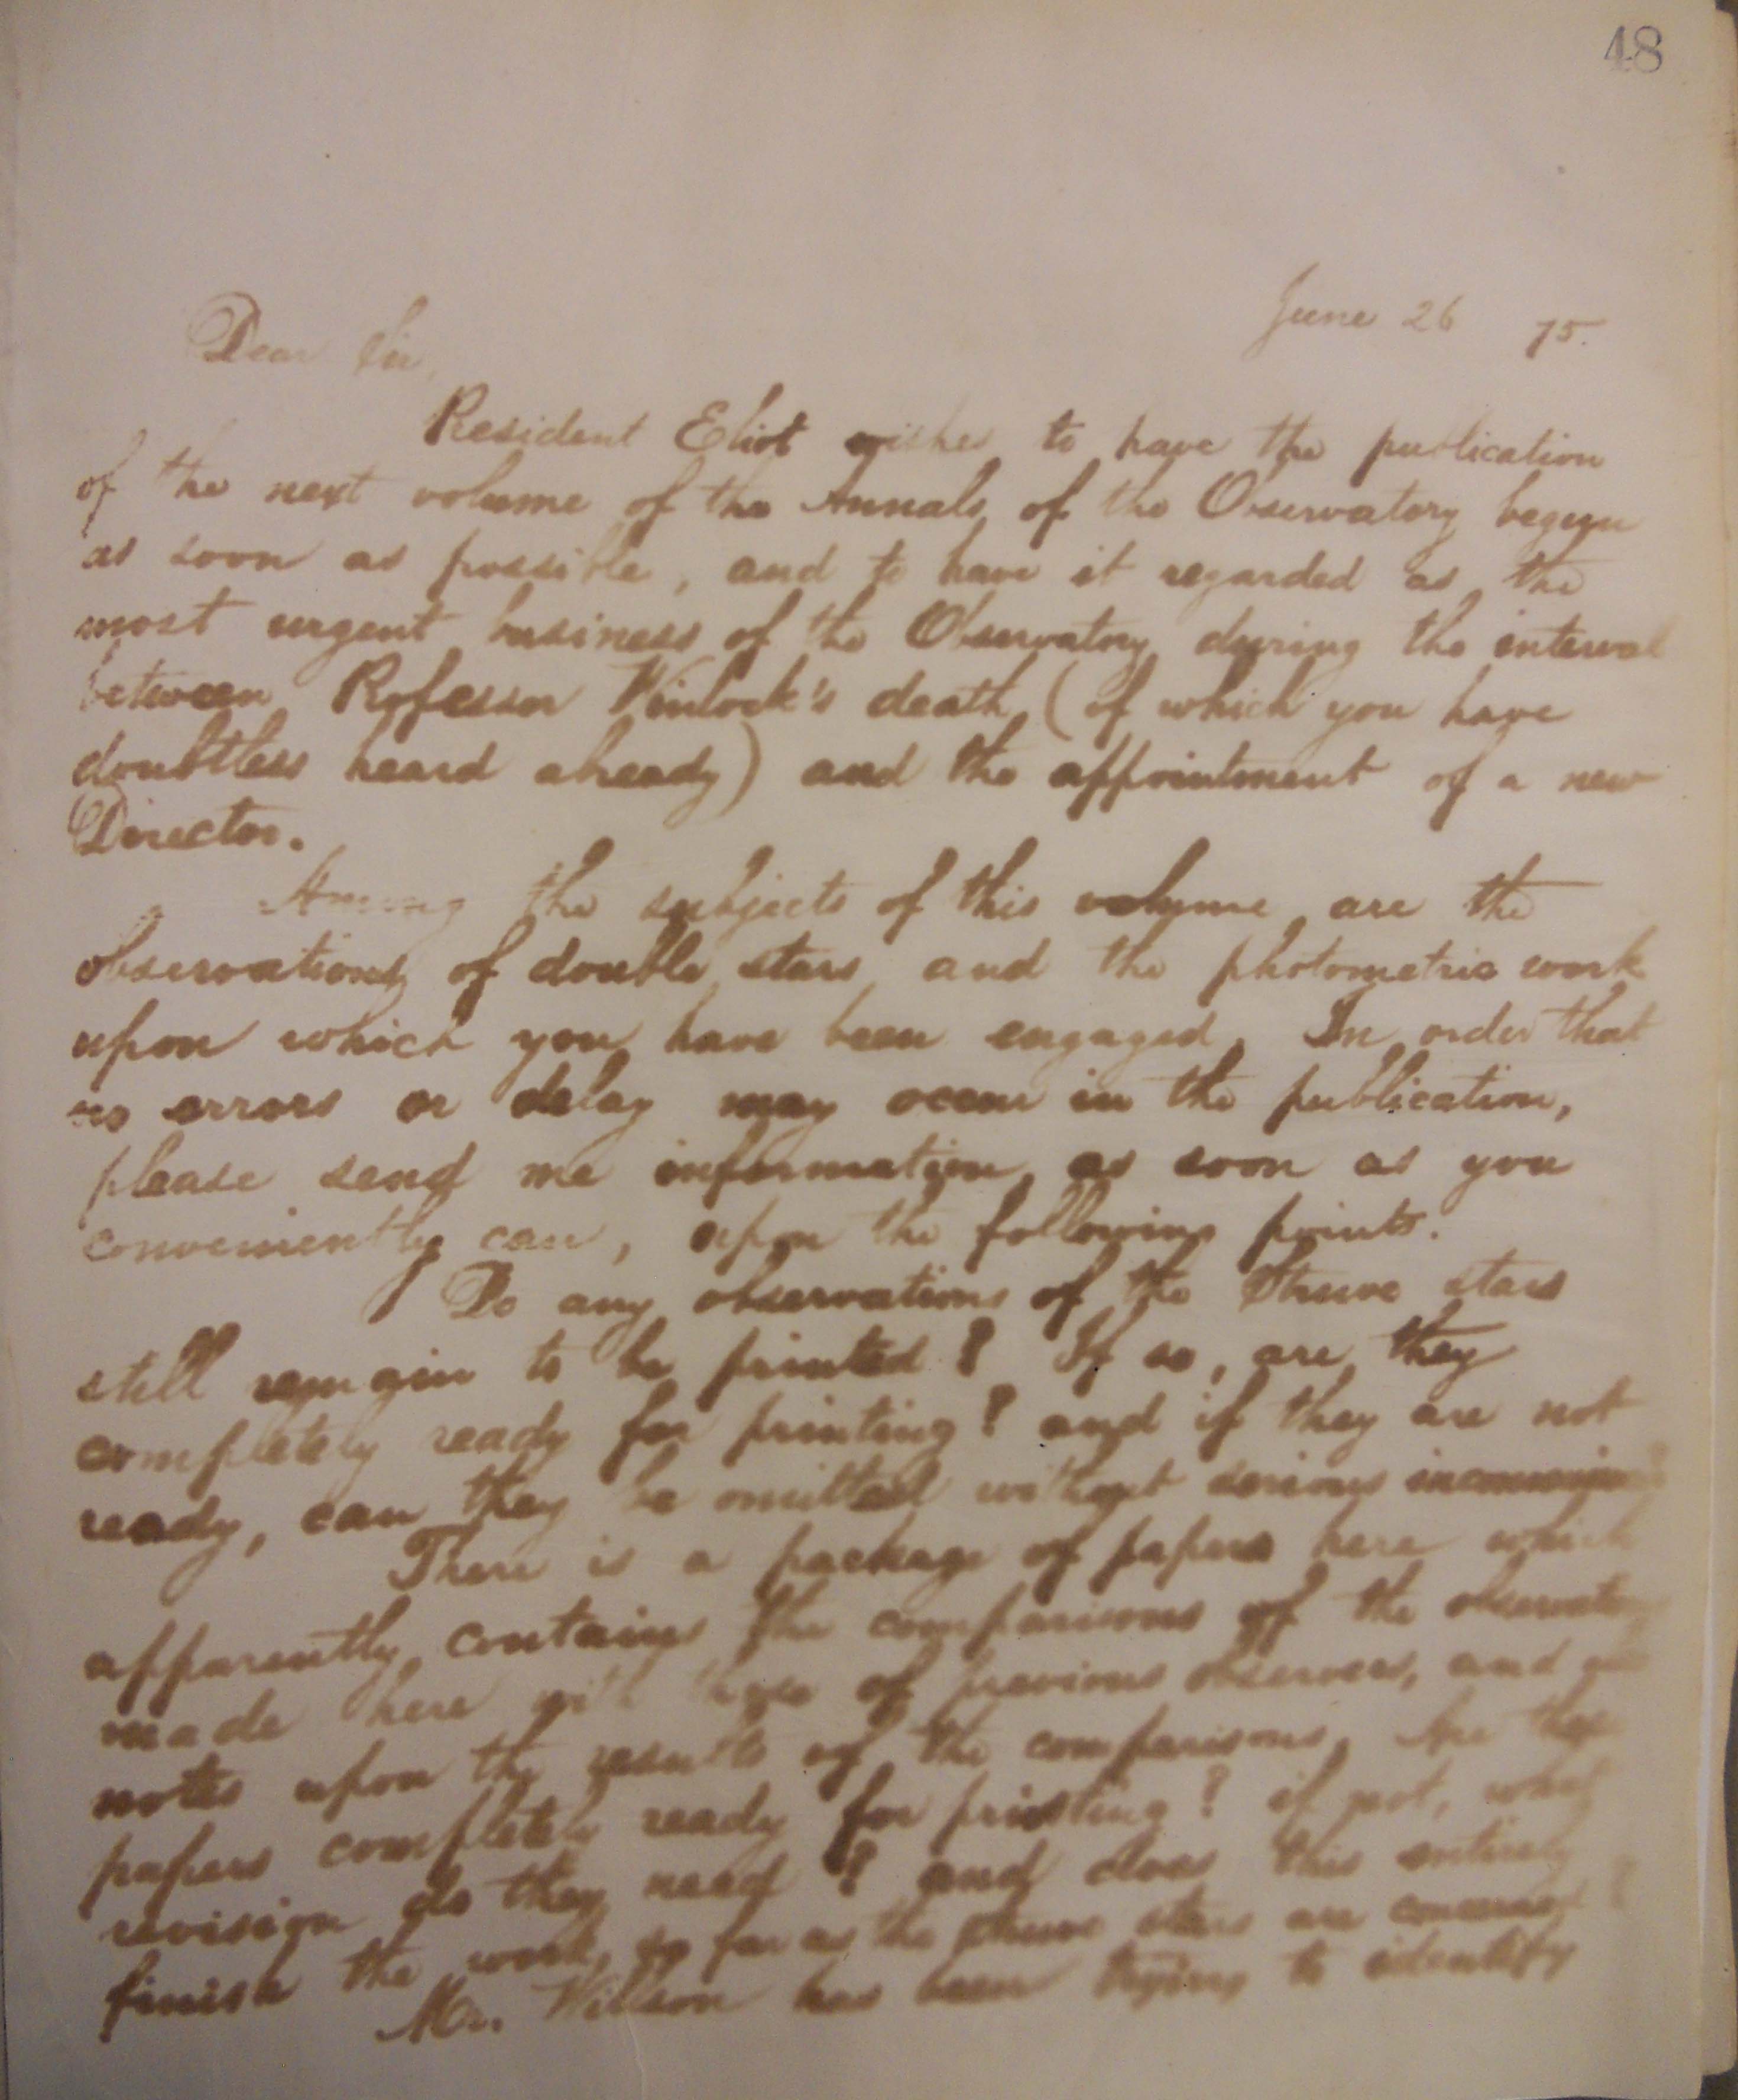 48
June 26 75.
Dear Sir,
President Eliot wishes to have the publication
of the next volume of the Annals of the Observatory begun
as soon as possible, and to have it regarded as the
most urgent business of the Observatory during the interval
between Professor Winlock's death (of which you have
doubtless heard already) and the appointment of a new
Director.
Among the subjects of this volume are the
observations of double stars and the photometric work
upon which you have been engaged. In order that
no errors or delay may occur in the publication,
please send me information, as soon as you
conveniently can, upon the following points.
Do any observations of the Struve stars
still remain to be printed? If so, are they
completely ready for printing? and if they are not
ready, can they be omitted without serious
There is a package of papers here which
apparently contains the comparisons of the
made here with those of previous observers, and
notes upon the results of the comparisons. Are these
papers completely ready for printing? if not, what
revision do they need? and does this entirely
finish the work, so far as the Struve stars are concerned?
Mr. Willson has been trying to identify